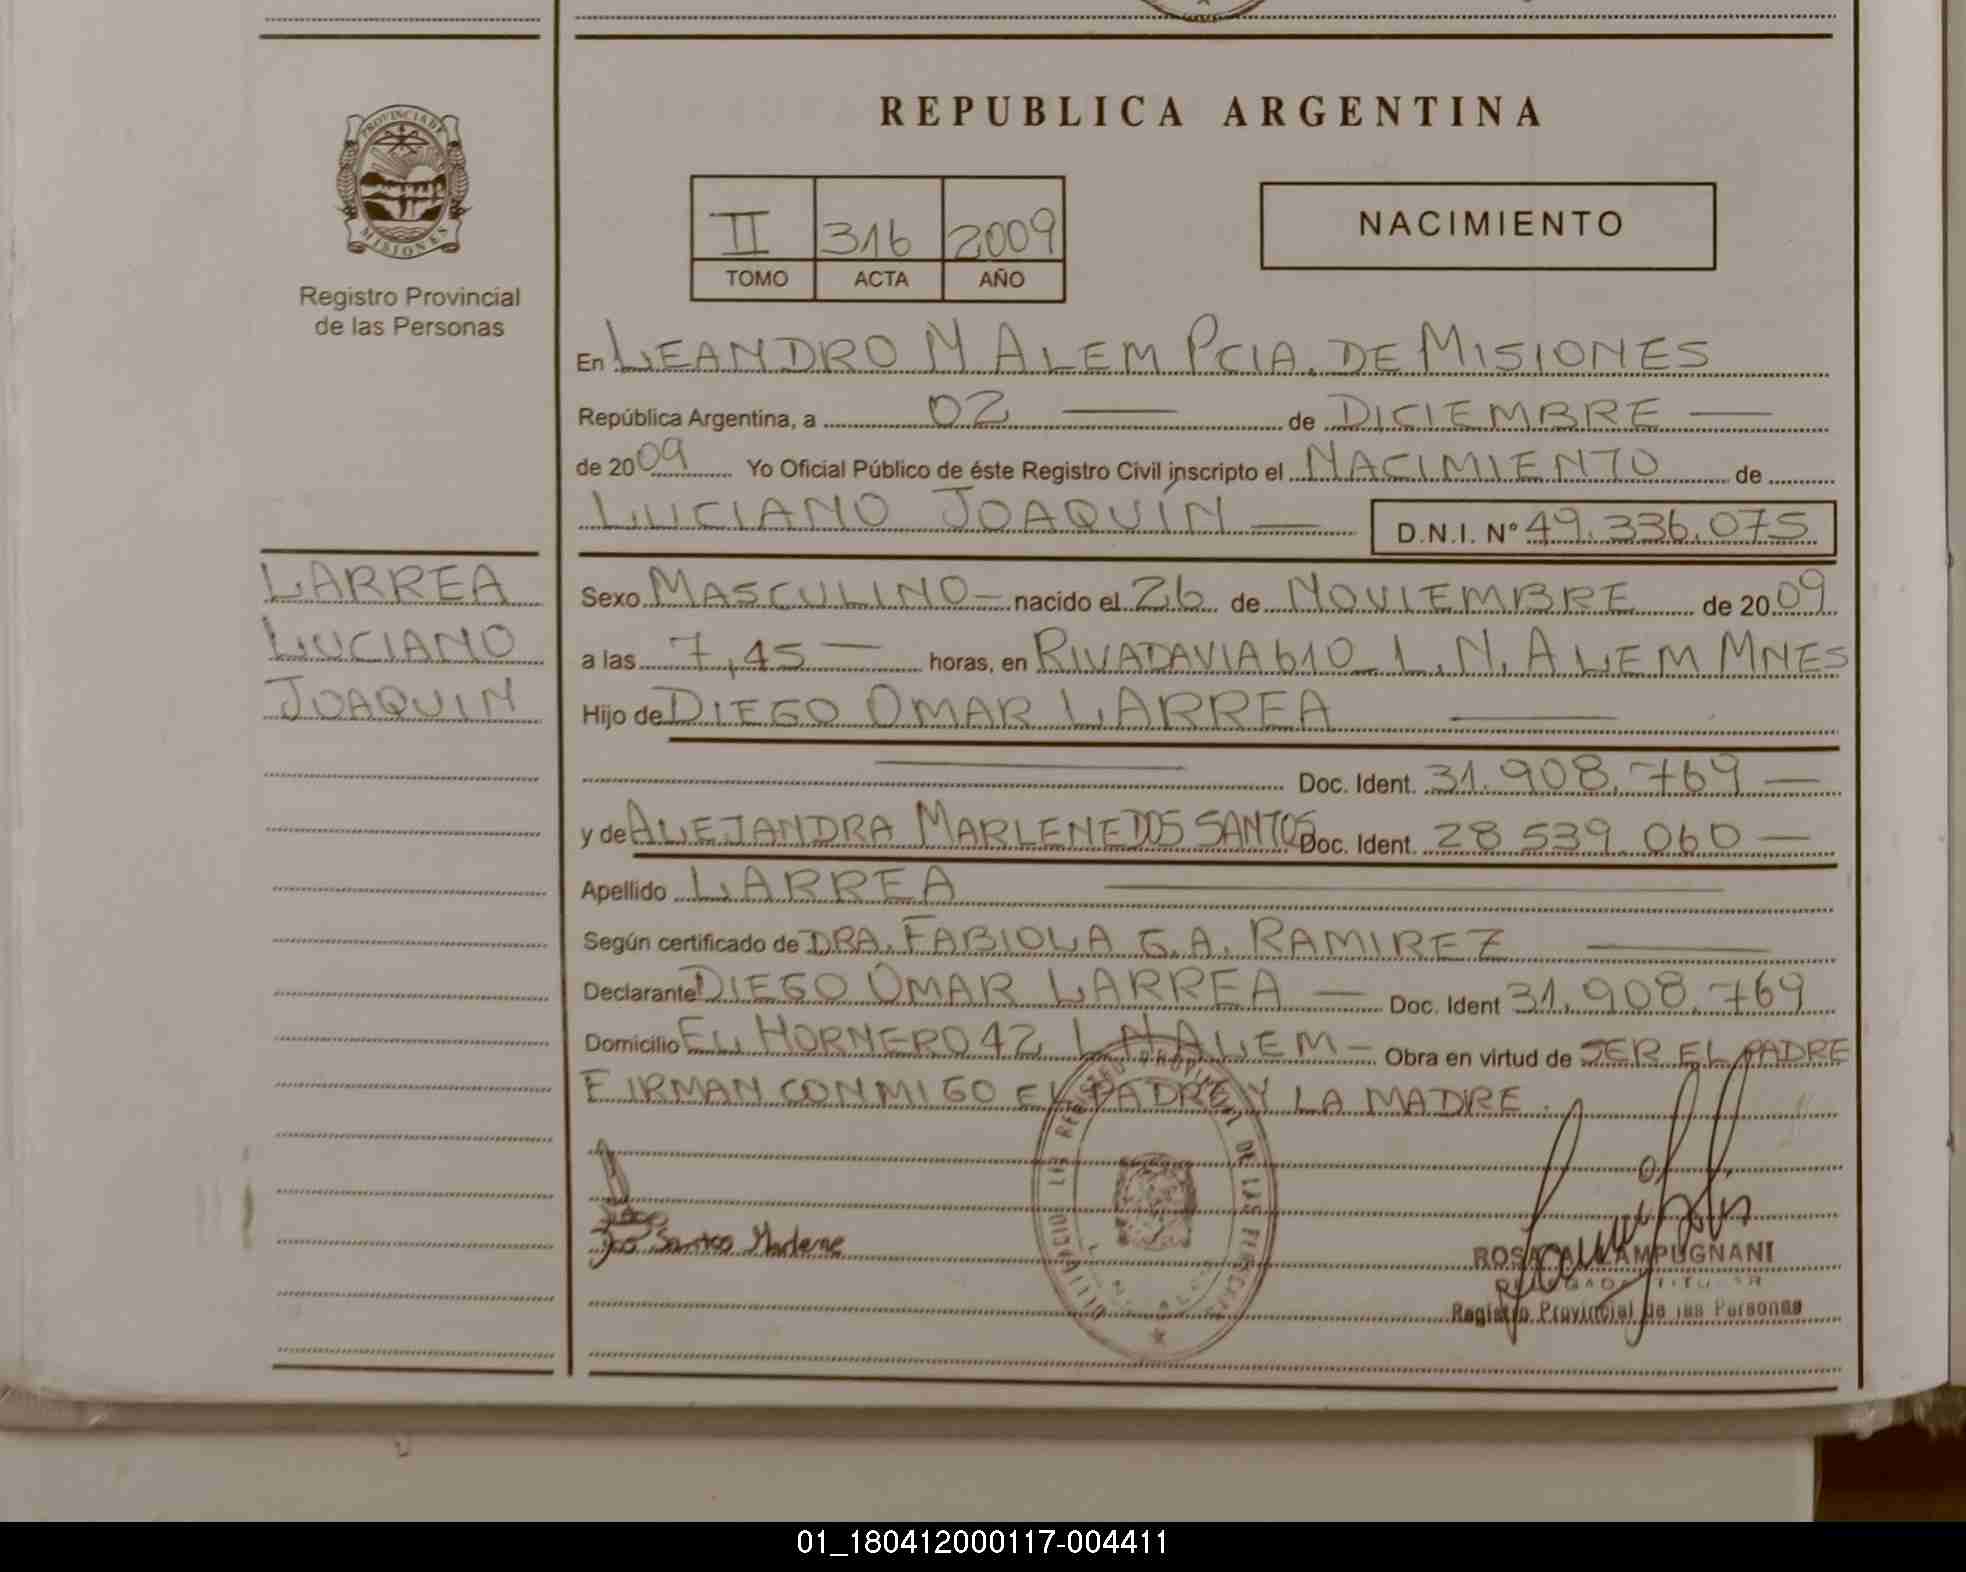 REPUBLICA ARGENTINA
PROVINCIA DE
MISIONES
Registro Provincial
de las Personas
II 316 2009
TOMO ACTA AÑO
NACIMIENTO
En LEANDRO N ALEM PCIA. DE MISIONES
República Argentina, a 02 de DICIEMBRE
de 2009 Yo Oficial Público de éste Registro Civil inscripto el NACIMIENTO de
LUCIANO JOAQUÍN D.N.I. Nº 49.336.075
LARREA
LUCIANO
JOAQUIN
Sexo MASCULINO nacido el 26 de NOVIEMBRE de 2009
a las 7,45 horas, en RIVADAVIA 610 L.N. ALEM MNES
Hijo de DIEGO OMAR LARREA
Doc. Ident. 31.908.769
y de ALEJANDRA MARLENE DOS SANTOS Doc. Ident. 28 539.060
Apellido LARREA
Según certificado de DRA. FABIOLA G.A. RAMIREZ
Declarante DIEGO OMAR LARREA Doc. Ident 31.908.769
Domicilio EL HORNERO 42 L N ALEM Obra en virtud de SER EL PADRE
FIRMAN CONMIGO EL PADRE Y LA MADRE.
REGISTRO PROVINCIAL DE LAS PERSONAS
Dos Santos Marlene
ROSA LAMPUGNANI
DELEGADA TITULAR
Registro Provincial de las Personas
01_180412000117-004411